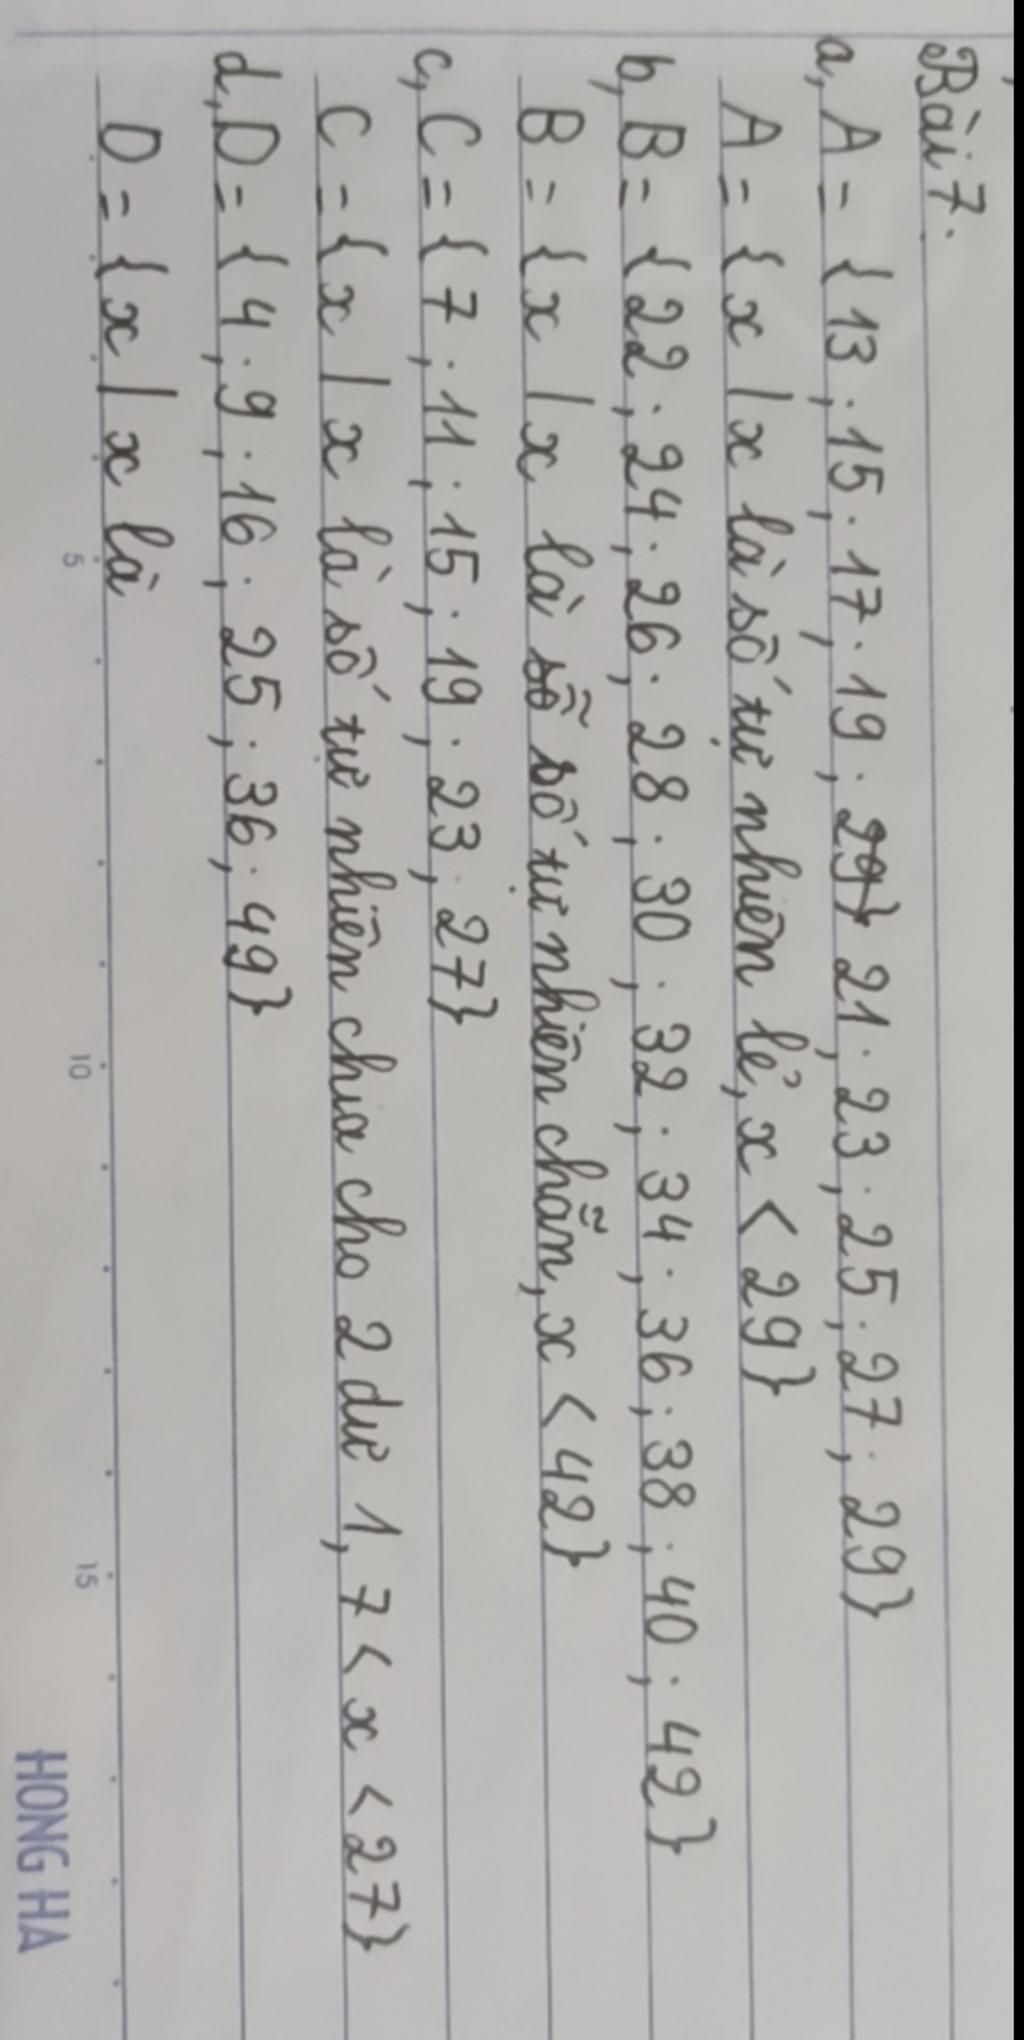 Bài 7.
a, A = {13; 15; 17; 19; 29} 21; 23; 25; 27; 29}
A = {x | x là số tự nhiên lẻ, x < 29}
b, B = {22; 24; 26; 28; 30; 32; 34; 36; 38; 40; 42}
B = {x | x là số số tự nhiên chẵn, x < 42}
c, C = {7; 11; 15; 19; 23; 27}
C = {x | x là số tự nhiên chia cho 2 dư 1, 7 < x < 27}
d, D = {4; 9; 16; 25; 36; 49}
D = {x | x là
5 10 15
HONG HA